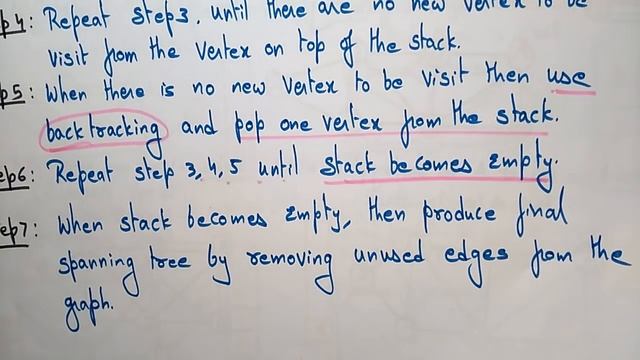 p4: Repeat step3, until there are no new vertex to be
visit from the vertex on top of the stack.
p5: When there is no new vertex to be visit then use
backtracking and pop one vertex from the stack.
ep6: Repeat step 3,4,5 until stack becomes empty.
ep7: When stack becomes empty, then produce final
spanning tree by removing unused edges from the
graph.